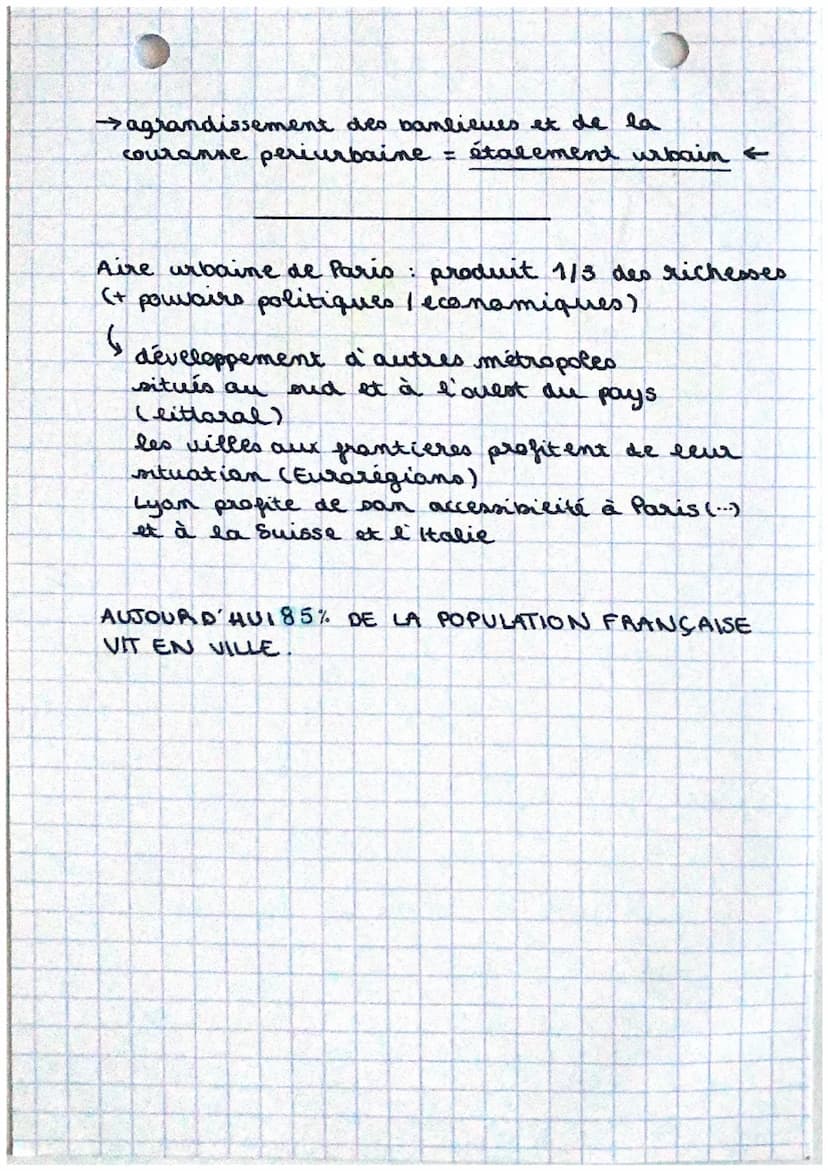 → agrandissement des banlieues et de la
couronne periurbaine = étalement urbain ←
Aire urbaine de Paris : produit 1/3 des richesses
(+ pouvoirs politiques / economiques)
↳ développement d'autres métropoles
situés au sud et à l'ouest du pays
(littoral)
les villes aux frontieres profitent de leur
situation (Eurorégions)
Lyon profite de son accessibilité à Paris (...)
et à la Suisse et l'Italie
AUJOURD'HUI 85% DE LA POPULATION FRANÇAISE
VIT EN VILLE.